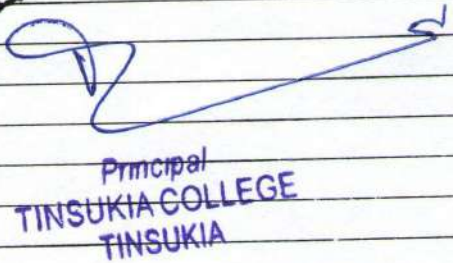 Principal
TINSUKIA COLLEGE
TINSUKIA